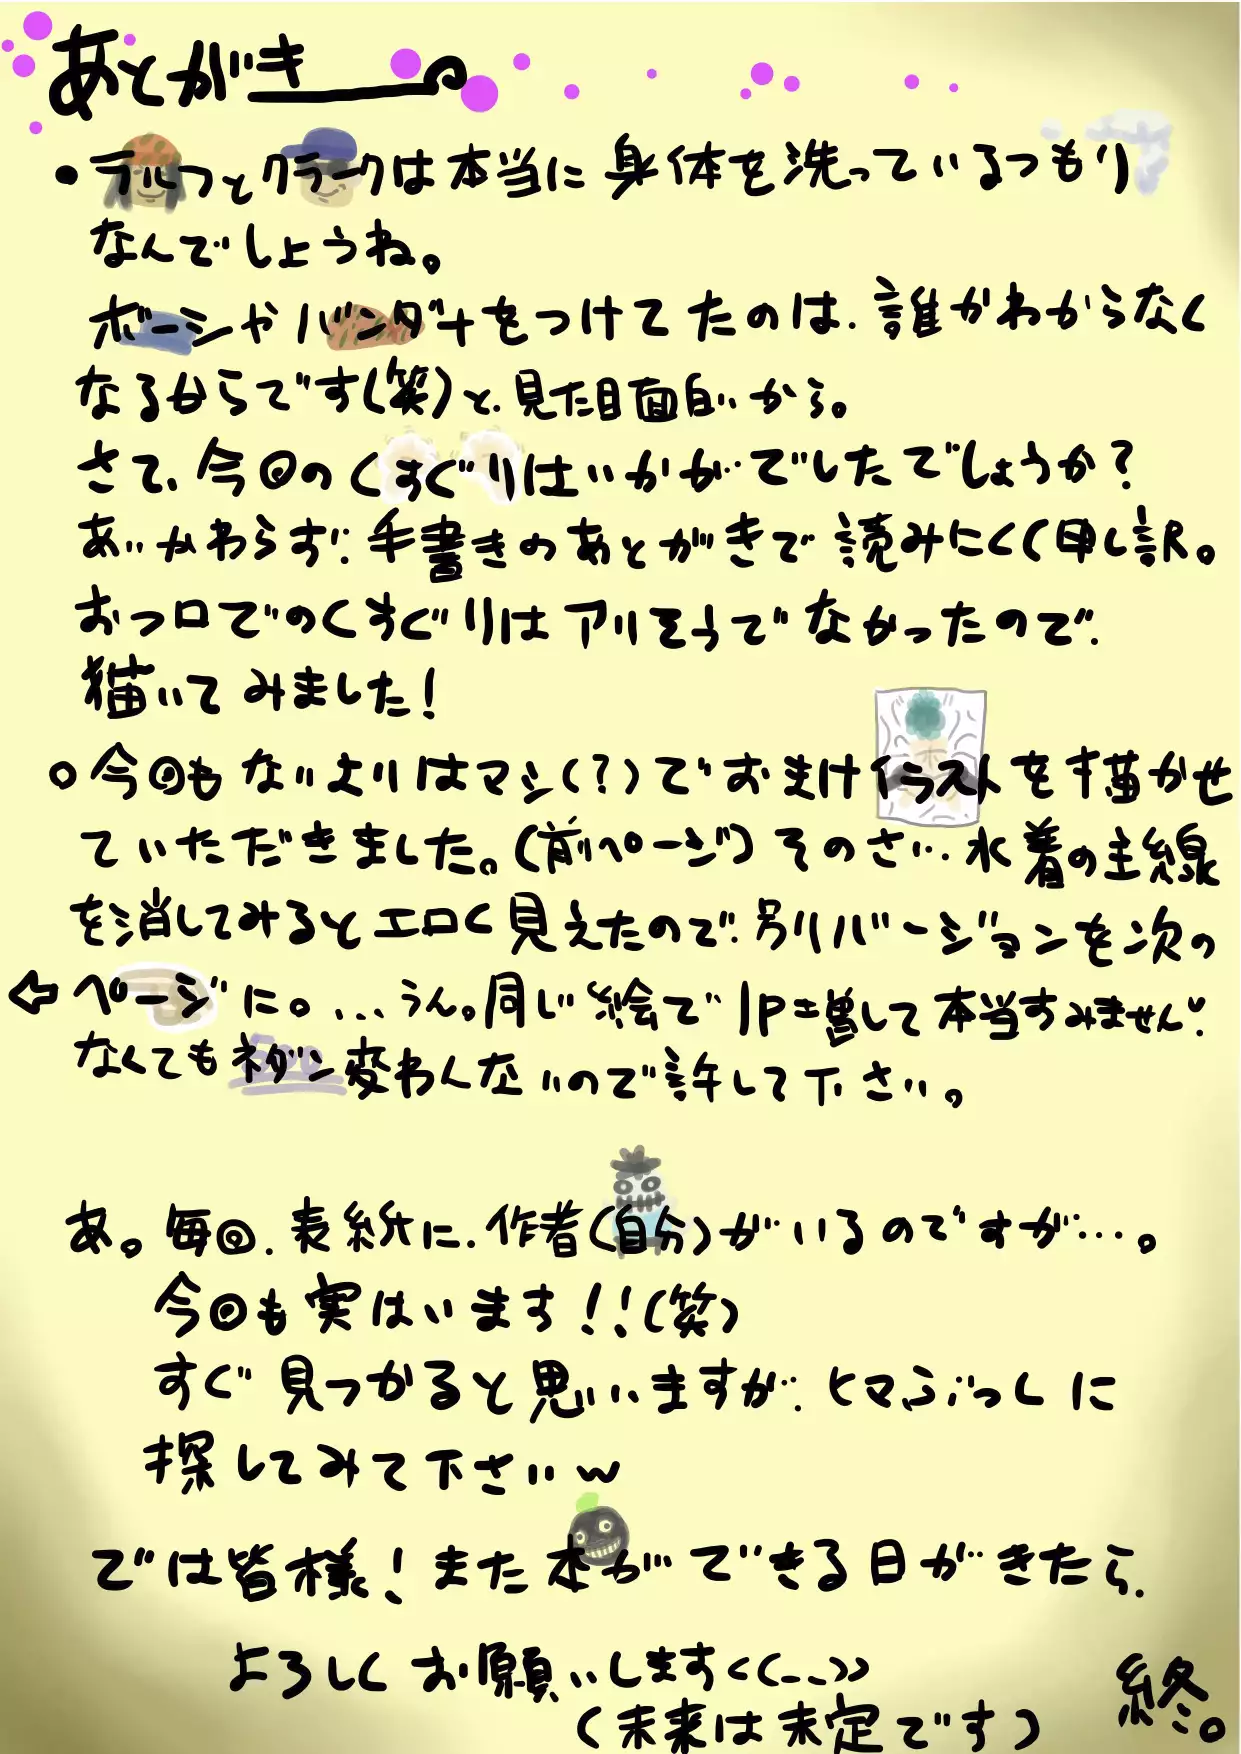 あとがき
・ラルフとクラークは本当に身体を洗っているつもり
なんでしょうね。
ボーシやバンダナをつけてたのは、誰かわからなく
なるからです(笑)と、見た目面白いから。
さて、今回のくすぐりはいかがでしたでしょうか？
あいかわらず、手書きのあとがきで読みにくく申し訳。
お口でのくすぐりはアリそうでなかったので、
描いてみました！
○今回もないよりはマシ(？)でおまけイラストを描かせ
ていただきました。(前ページ)そのさい、水着の主線
を消してみるとエロく見えたので、別バージョンを次の
⇦ページに。...うん。同じ絵で1P増して本当すみません!
なくてもネダン変わんないので許して下さい。
あ。毎回、表紙に、作者(自分)がいるのですが…。
今回も実はいます！！(笑)
すぐ見つかると思いますが、ヒマぶっしに
探してみて下さいw
では皆様！また本ができる日がきたら、
よろしくお願いします<(_ _)>
(未来は未定です)
終。